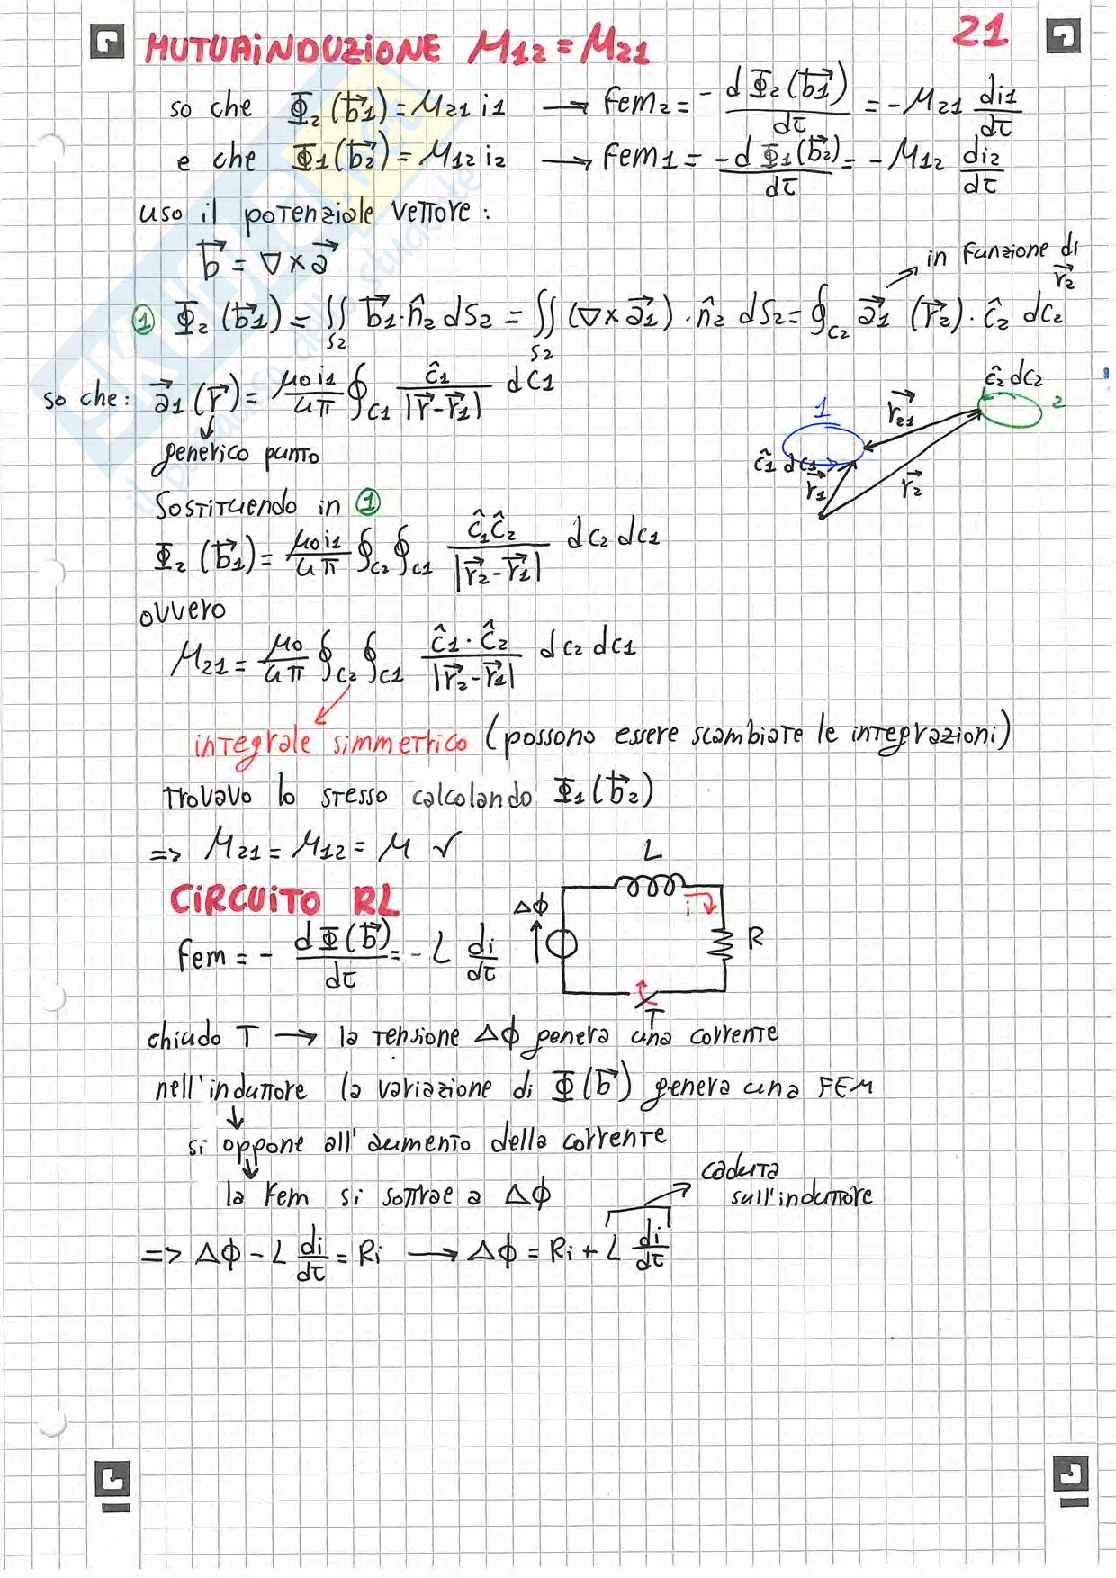 MUTUAINDUZIONE M₁₂ = M₂₁
21
so che Φ₂(b⃗₁) = M₂₁ i₁ → Fem₂ = - dΦ₂(b⃗₁)/dτ = - M₂₁ di₁/dτ
e che Φ₁(b⃗₂) = M₁₂ i₂ → Fem₁ = - dΦ₁(b⃗₂)/dτ = - M₁₂ di₂/dτ
uso il potenziale vettore:
b⃗ = ∇ × a⃗
in funzione di r⃗₂
① Φ₂(b⃗₁) = ∬S₂ b⃗₁ · n̂₂ dS₂ = ∬S₂ (∇ × a⃗₁) · n̂₂ dS₂ = ∮C₂ a⃗₁ (r⃗₂) · ĉ₂ dc₂
so che: a⃗₁(r⃗) = μ₀i₁/4π ∮C₁ ĉ₁/|r⃗ - r⃗₁| dC1
generico punto
1
2
ĉ₂ dc₂
r⃗₂₁
ĉ₁ dc₁
r⃗₁
r⃗₂
Sostituendo in ①
Φ₂(b⃗₁) = μ₀i₁/4π ∮C₂ ∮C₁ ĉ₁ĉ₂/|r⃗₂ - r⃗₁| dc₂ dc₁
ovvero
M₂₁ = μ₀/4π ∮C₂ ∮C₁ ĉ₁ · ĉ₂/|r⃗₂ - r⃗₁| dc₂ dc₁
integrale simmetrico (possono essere scambiate le integrazioni)
trovavo lo stesso calcolando Φ₁(b⃗₂)
=> M₂₁ = M₁₂ = M ✓
CIRCUITO RL
Fem = - dΦ(b⃗)/dτ = - L di/dτ
L
Δϕ
i
R
T
chiudo T → la tensione Δϕ genera una corrente
nell'induttore la variazione di Φ(b⃗) genera una FEM
si oppone all'aumento della corrente
la Fem si sottrae a Δϕ
caduta
sull'induttore
=> Δϕ - L di/dτ = Ri → Δϕ = Ri + L di/dτ